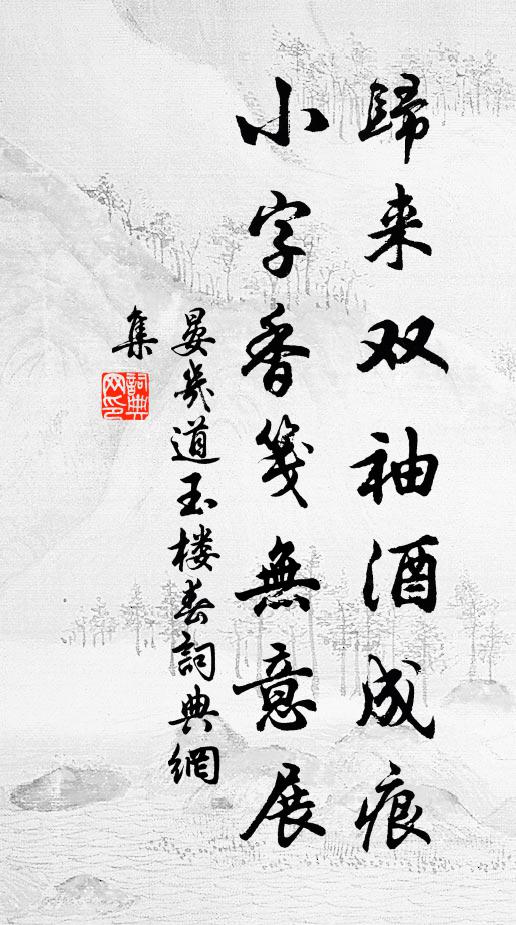 歸来双袖酒成痕
小字香箋無意展
晏幾道玉楼春詞典網
集
詞典
網印